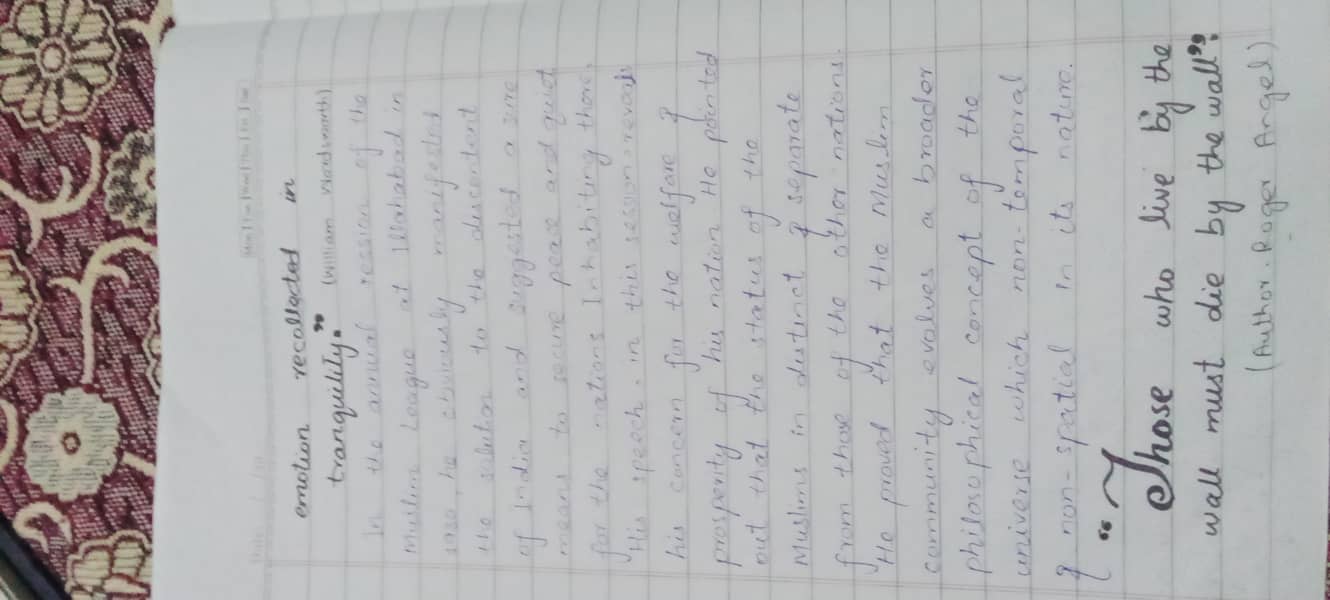 emotion recollected in
tranquility."
(William Wordsworth)
In the annual session of the
Muslim League at Illahabad in
he obviously manifested
the solution to the discontent
of India and suggested a sure
means to secure peace and quiet
for the nations Inhabiting there.
His speech in this session reveals
his concern for the welfare &
prosperity of his nation He pointed
out that the status of the
Muslims in distinct & separate
from those of the other nations.
He proved that the Muslim
community evolves a broader
philosophical concept of the
universe which non-temporal
& non-spatial in its nature.
"Those who live by the
wall must die by the wall"
(Author. Roger Angel)